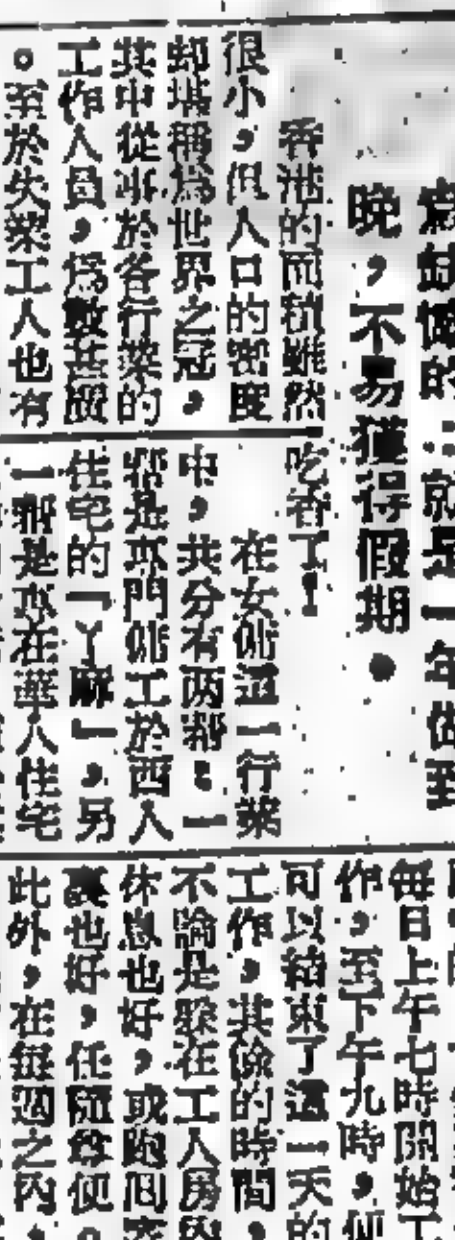 就是一年做到
晚，不易獲得假期●
香港的面積雖然
很小，但人口的密度
却堪稱爲世界之冠，
其中從事於各行業的
工作人員，爲數甚
。至於失業工人也有
吃香了！
在女傭這一行業
中，共分有两幫：一
帮是專門傭工於西人
住宅的「丫麻」，另
一帮是專在華人住宅
每日上午七時開始工
作，至下午九時，便
可以結束了這一天的
工作，其餘的時間，
不論是躲在工人房內
休息也好，或跑回家
裏也好，任隨尊便。
此外，在每週之內，